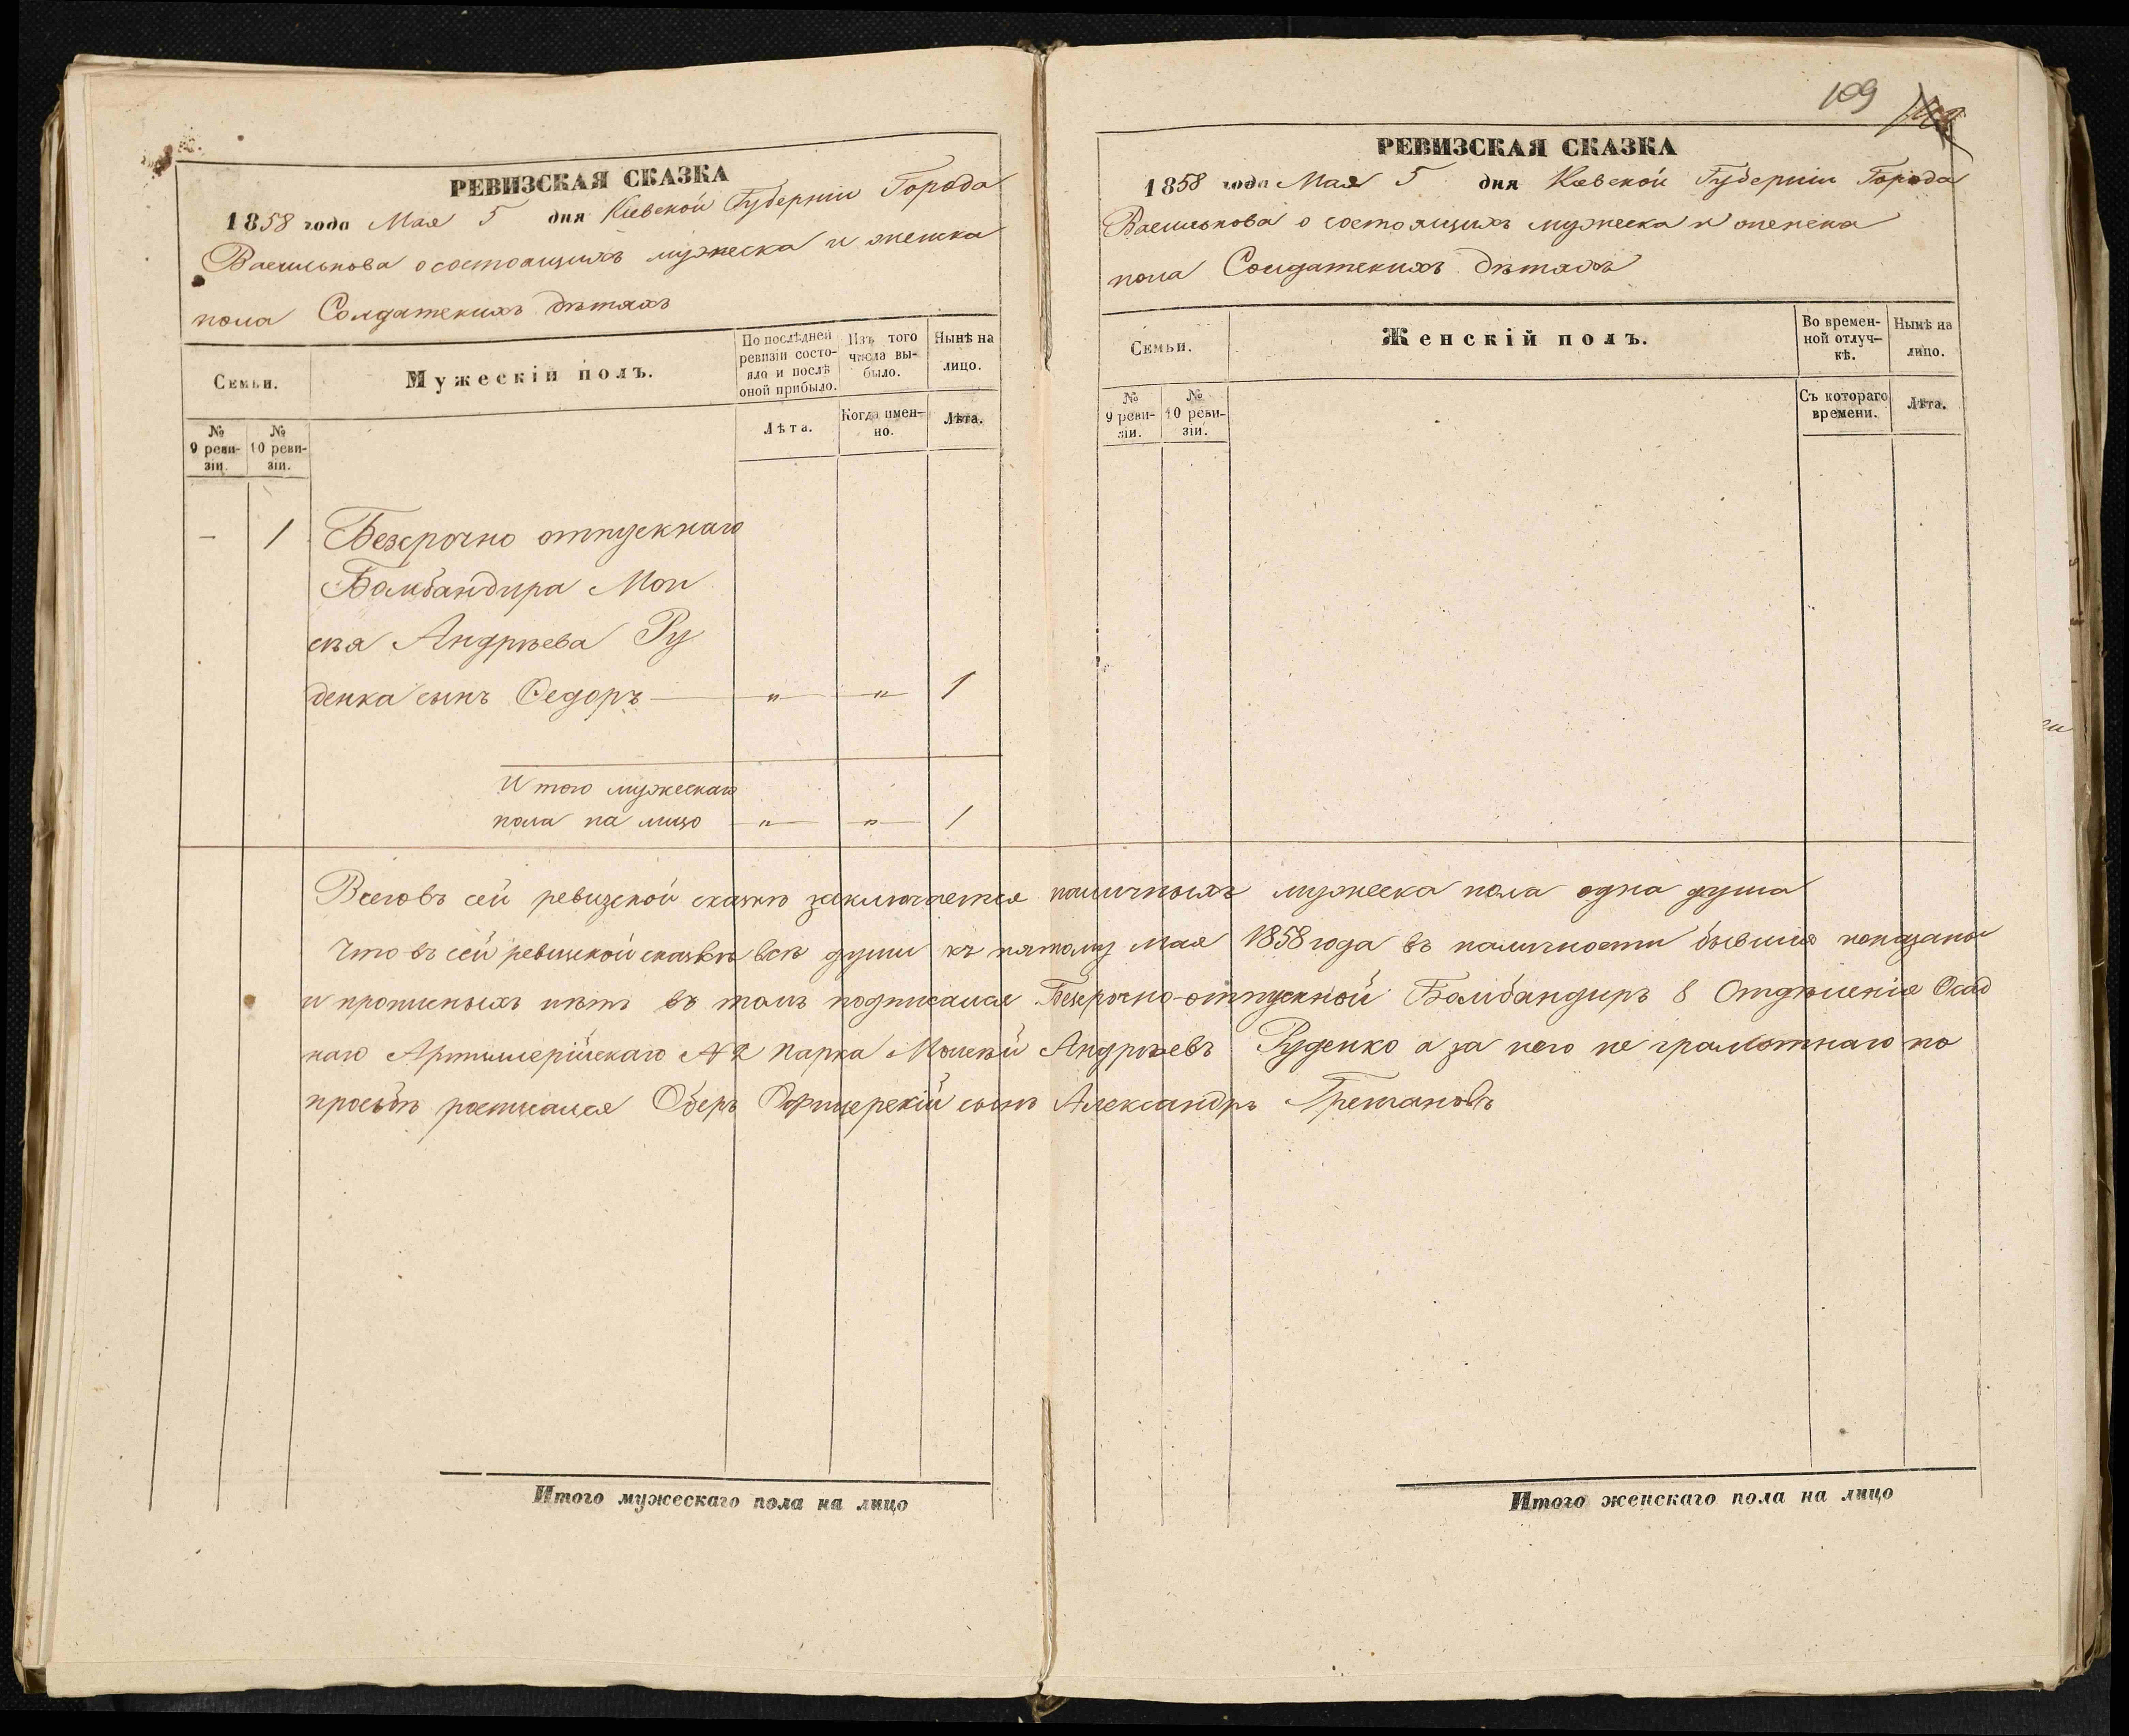 РЕВИЗСКАЯ СКАЗКА
1858 года Мая 5 дня Кіевской Губерніи Города
Василькова о состоящихъ мужеска и женска
пола Солдатскихъ дѣтяхъ
Семьи.
Мужескій полъ.
По послѣдней ревизіи состояло и послѣ оной прибыло.
Изъ того числа выбыло.
Нынѣ на лицо.
№ 9 ревизіи.
№ 10 ревизіи.
Лѣта.
Когда именно.
Лѣта.
— 1 Безсрочно отпускнаго
Бамбандира Мои
сѣя Андрѣева Ру
денка сынъ Федоръ — " — " — 1
Итого мужескаго
пола на лицо — " — " — 1
109
РЕВИЗСКАЯ СКАЗКА
1858 года Мая 5 дня Кіевской Губерніи Города
Василькова о состоящихъ мужеска и женска
пола Солдатскихъ дѣтяхъ
Семьи.
Женскій полъ.
Во временной отлучкѣ.
Нынѣ на лицо.
№ 9 ревизіи.
№ 10 ревизіи.
Съ котораго времени.
Лѣта.
Всего въ сей ревизской сказкѣ заключается наличныхъ мужеска пола одна душа
Что въ сей ревизской сказкѣ всѣ души къ пятому мая 1858 года въ наличности бывшія показаны
и прописныхъ нѣтъ въ томъ подписался Безсрочно-отпускной Бамбандиръ 8 Отдѣленія Осад
наго Артиллерійскаго № 2 парка Моисѣй Андрѣевъ Руденко а за него не грамотнаго по
просьбѣ росписался Оберъ Офицерскій сынъ Александръ
Итого мужескаго пола на лицо
Итого женскаго пола на лицо